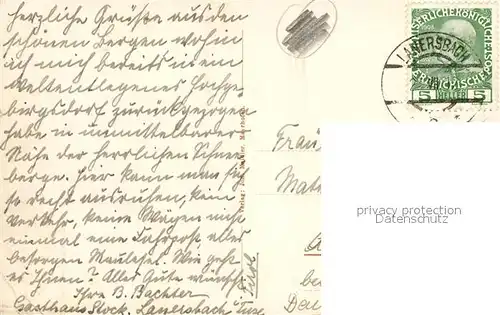 herzliche Grüße aus den
schönen Bergen wohin
ich mich bereits in ein
weltentlegenes Hochge-
birgsdorf zurückgezogen
habe in unmittelbarer
Nähe der herrlichen Schnee-
berge. Hier kann man sich
so recht ausruhen, kein
Verkehr, keine Wagen nicht
einmal eine Fahrpost, alles
besorgen Maulesel. Wie geht
es Ihnen? Alles Gute wünscht
Ihre B. Bachter
Gasthaus Stock, Lanersbach Tuxe
Tirol
KAISERLICHE KÖNIGLICHE
1908
5 HELLER 5
LANERSBACH
Fräu
Mate
be
privacy protection
DATENSCHUTZ